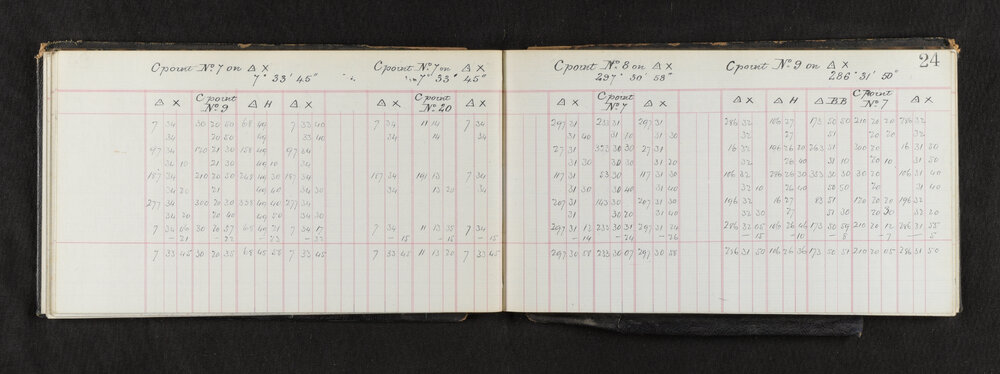 24
C point No. 7 on Δ X
7° 33' 45"
C point No. 7 on Δ X
7° 33' 45"
Δ X C point No. 9 Δ H Δ X
Δ X C point No. 20 Δ X
7 34 30 20 50 68 49 7 33 40
34 20 50 49 33 40
97 34 120 21 30 158 49 97 34
34 10 21 30 49 10 34
187 34 210 20 30 248 49 30 187 34
34 20 21 49 40 34 30
277 34 300 20 30 338 49 40 277 34
34 20 20 40 49 50 34 30
7 34 06 30 20 37 68 49 21 7 34 17
7 33 45 30 20 35 68 45 58 7 33 45
7 34 11 14 7 34
34 14 34
187 34 191 13 7 34
34 13 20 34
7 34 11 13 35 7 34
- 15 - 15 - 15
7 33 45 11 13 20 7 33 45
C point No. 8 on Δ X
297° 30' 58"
C point No. 9 on Δ X
286° 31' 50"
Δ X C point No. 7 Δ X
Δ X Δ H Δ BB C Point No. 7 Δ X
297 31 233 31 297 31
31 40 31 10 31 30
27 31 323 30 30 27 31
31 30 30 30 31 20
117 31 53 30 117 31
31 30 30 40 31 40
207 31 143 30 207 31
31 30 20 31 40
297 31 12 233 30 31 297 31 24
- 14 - 24 - 26
297 30 58 233 30 07 297 30 58
286 32 106 27 173 50 50 210 20 20 286 32
32 27 51 20 20 32
16 32 196 26 20 263 51 300 20 16 31 50
32 26 40 51 10 20 10 31 50
106 32 286 26 30 353 50 30 30 20 106 31 40
32 10 26 40 50 50 20 31 40
196 32 16 27 83 51 120 20 20 196 32
32 30 27 51 30 20 30 32 20
286 32 05 106 26 46 173 50 59 210 20 12 286 31 55
- 15 - 10 - 8 - 7 - 5
286 31 50 106 26 36 173 50 51 210 20 05 286 31 50